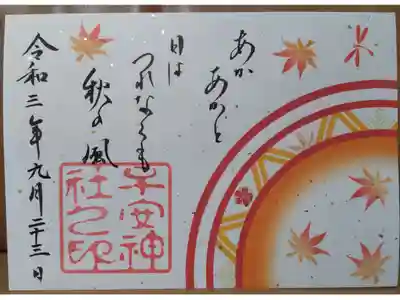 あか
あかと
日は
つれなくも
秋の風
令和三年九月二十三日
子安神
社之印